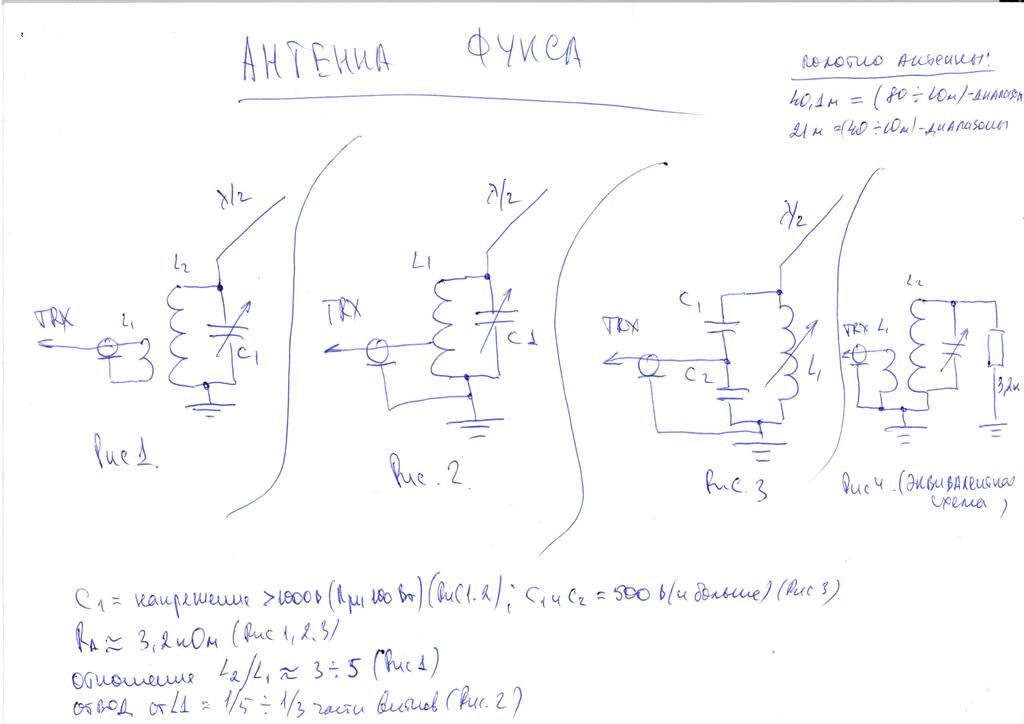 АНТЕННА ФУКСА
ПОЛОТНО АНТЕННЫ:
40,1м = (80 ÷ 10м)-диапазон
21м = (40 ÷ 10м)-диапазоны
λ/2
L₂
TRX
L₁
C₁
Рис 1.
λ/2
L1
TRX
C1
Рис. 2.
λ/2
C₁
TRX
C₂
L₁
Рис. 3
L₂
TRX L₁
3,2к
Рис 4. (Эквивалентная
схема)
C₁ = напряжение >1000в (При 100 Вт) (Рис 1.2); C₁ и C₂ = 500 в (и больше) (Рис 3)
RА ≈ 3,2 кОм (Рис 1, 2, 3)
отношение L₂/L₁ ≈ 3 ÷ 5 (Рис 1)
отвод от L1 = 1/5 ÷ 1/3 части витков (Рис. 2)